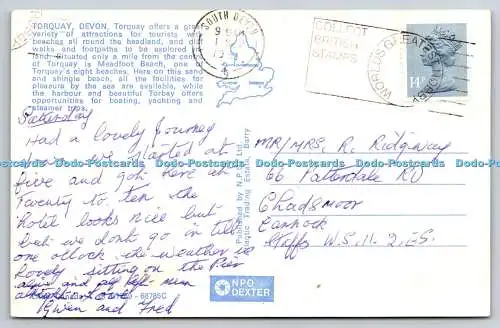 TORQUAY, DEVON, Torquay offers a great
variety of attractions for tourists with
beaches all round the headland, and cliff
walks and footpaths to be explored by
land. Situated only a mile from the centre
of Torquay is Meadfoot Beach, one of
Torquay's eight beaches. Here on this sand
and shingle beach, all the facilities for
pleasure by the sea are available, while
the harbour and beautiful Torbay offers
opportunities for boating, yachting and
steamer trips.
SOUTH DEVON
COLLECT
BRITISH
STAMPS
WORLDS GREATEST
14
Saturday
Had a lovely Journey
we started at
five and got here at
Twenty to ten the
hotel looks nice but
but we dont go in till
one o'clock the weather is
lovely sitting on the Pier
Love
Gwen and Fred
MR/MRS. R. Ridgway
66 Patterdale RD
Chadsmoor
Cannock
Staffs W.S.11. 2.E.S.
Published by N.P.O.
Trading Estate, Bury
NPO
DEXTER
Dodo-Postcards Dodo-Postcards Dodo-Postcards Dodo-Postcards Dodo-Postcards